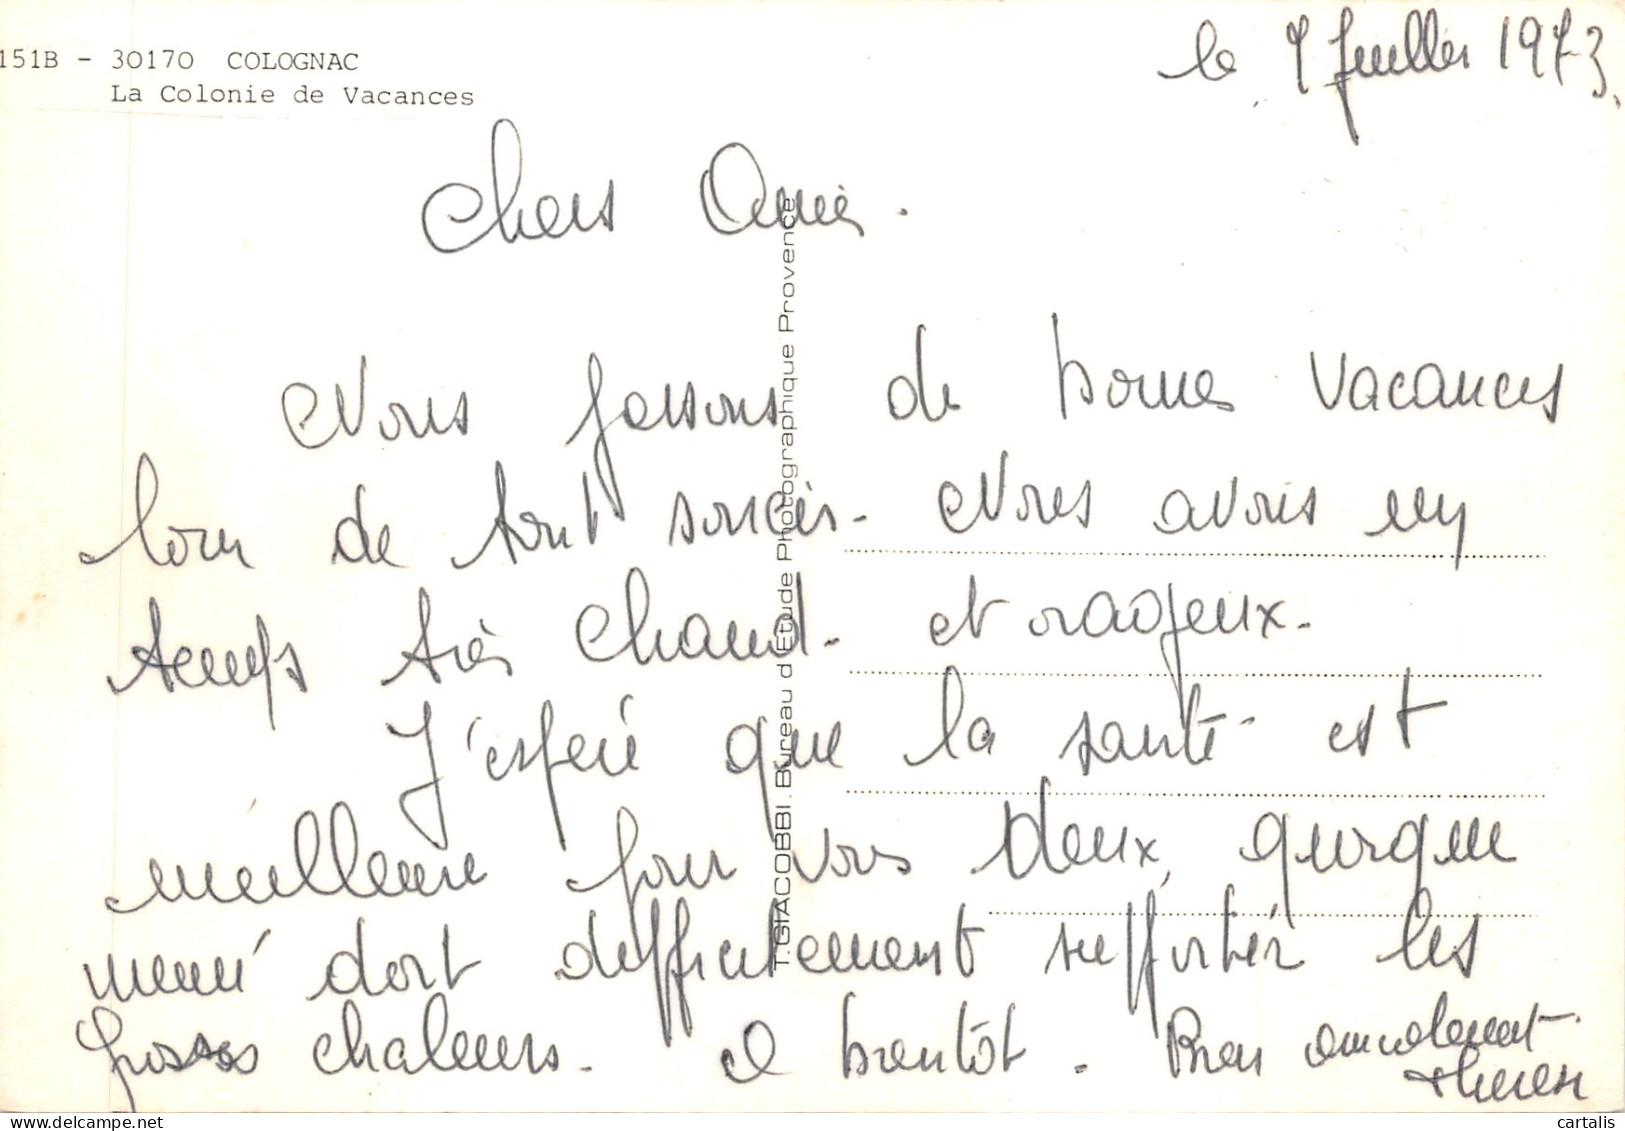 151B - 30170 COLOGNAC
La Colonie de Vacances
le 7 Juillet 1973.
Chers Amis.
Nous passons de bonnes vacances
loin de tout soucis. Nous avons un
temps très chaud. et orageux.
J'espère que la santé est
meilleure pour vous deux, quoique
mémé doit difficilement supporter les
grosses chaleurs. A bientôt. Bien amicalement
Thérèse
T. GIACOBBI. Bureau d'Etude Photographique Provence
cartalis